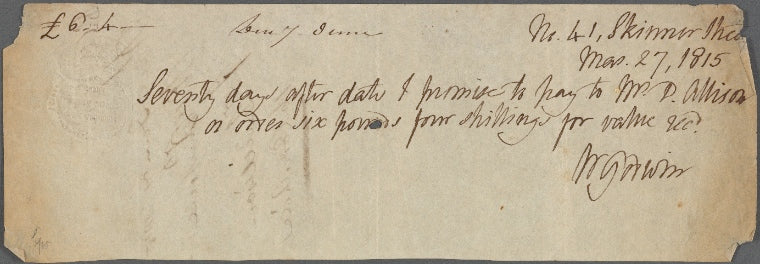 £6-4-
No. 41, Skinner Stree
Mar. 27, 1815
Seventy days after date I promise to pay to Mr. D. Allison
or order six pounds four shillings for value recd.
WGodwin